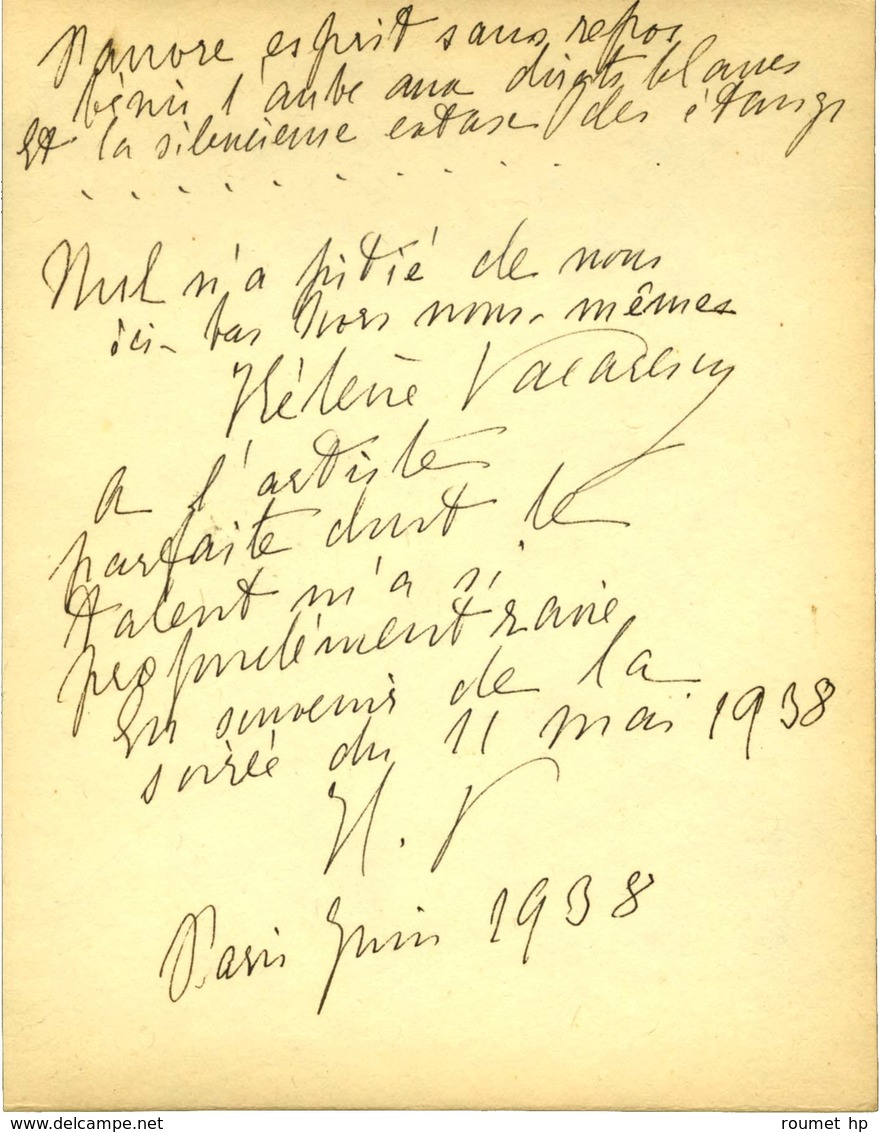 Pauvre esprit sans repos
bénis l'aube aux doigts blancs
Et la silencieuse extase des étangs
. . . . . . . . . . . .
Nul n'a pitié de nous
ici-bas hors nous-mêmes
Hélène Vacaresco
A l'artiste
parfaite dont le
talent m'a si
profondément ravie
En souvenir de la
soirée du 11 mai 1938
H. V
Paris Juin 1938
www.delcampe.net
roumet hp